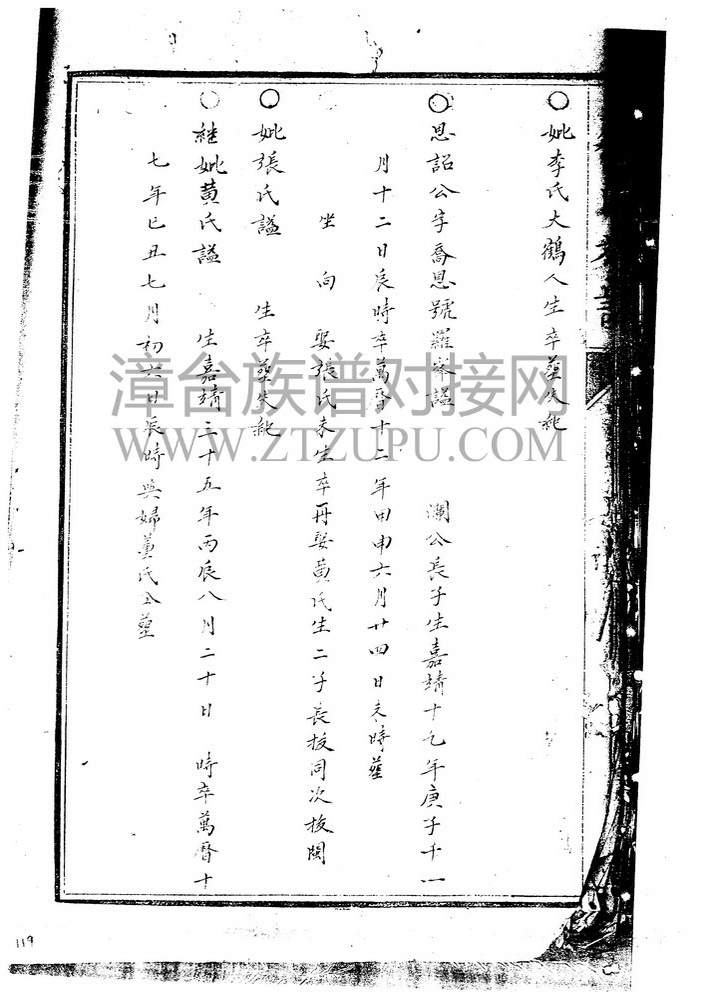 ○妣李氏大鶴人生卒塟失紀
○恩詔公字喬恩號羅峯謚 瀾公長子生嘉靖十九年庚子十一
月十二日辰時卒萬曆十二年甲申六月廿四日未時塟
坐 向 娶張氏未生卒再娶黄氏生二子長梭同次梭閩
○妣張氏謚 生卒塟失紀
○継妣黄氏謚 生嘉靖三十五年丙辰八月二十日 時卒萬曆十
七年己丑七月初六日辰時與婦董氏仝塟
漳台族谱对接网
WWW.ZTZUPU.COM
119